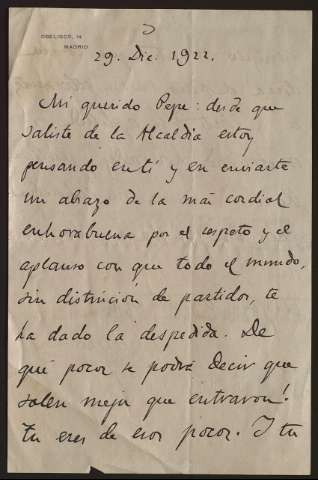 OBELISCO, 14
MADRID
29. Dic. 1922.
Mi querido Pepe: desde que
saliste de la Alcaldia estoy
pensando en tí y en enviarte
un abrazo de la más cordial
enhorabuena por el respeto y el
aplauso con que todo el mundo,
sin distinción de partidos, te
ha dado la despedida. De
qué pocos se podrá decir que
salen mejor que entraron!
Tu eres de esos pocos. I tu